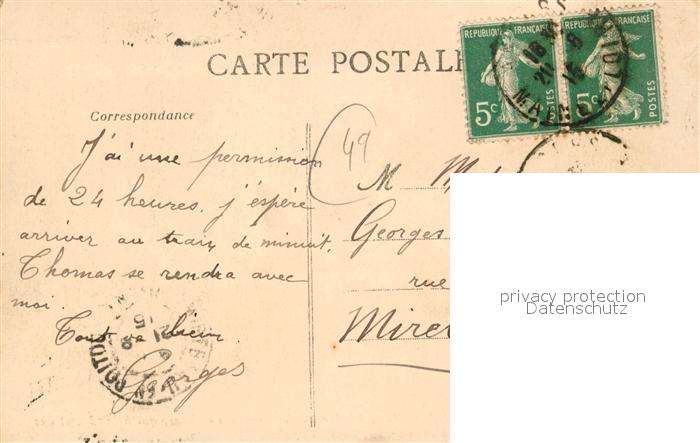 CARTE POSTALE
REPUBLIQUE FRANÇAISE
5c POSTES
REPUBLIQUE FRANÇAISE
5c POSTES
Correspondance
J'ai une permission
de 24 heures. j'éspère
arriver au train de minuit.
Thomas se rendra avec
moi.
Tout va bien.
Georges
49
M
Georges
rue
Mire
privacy protection
Datenschutz